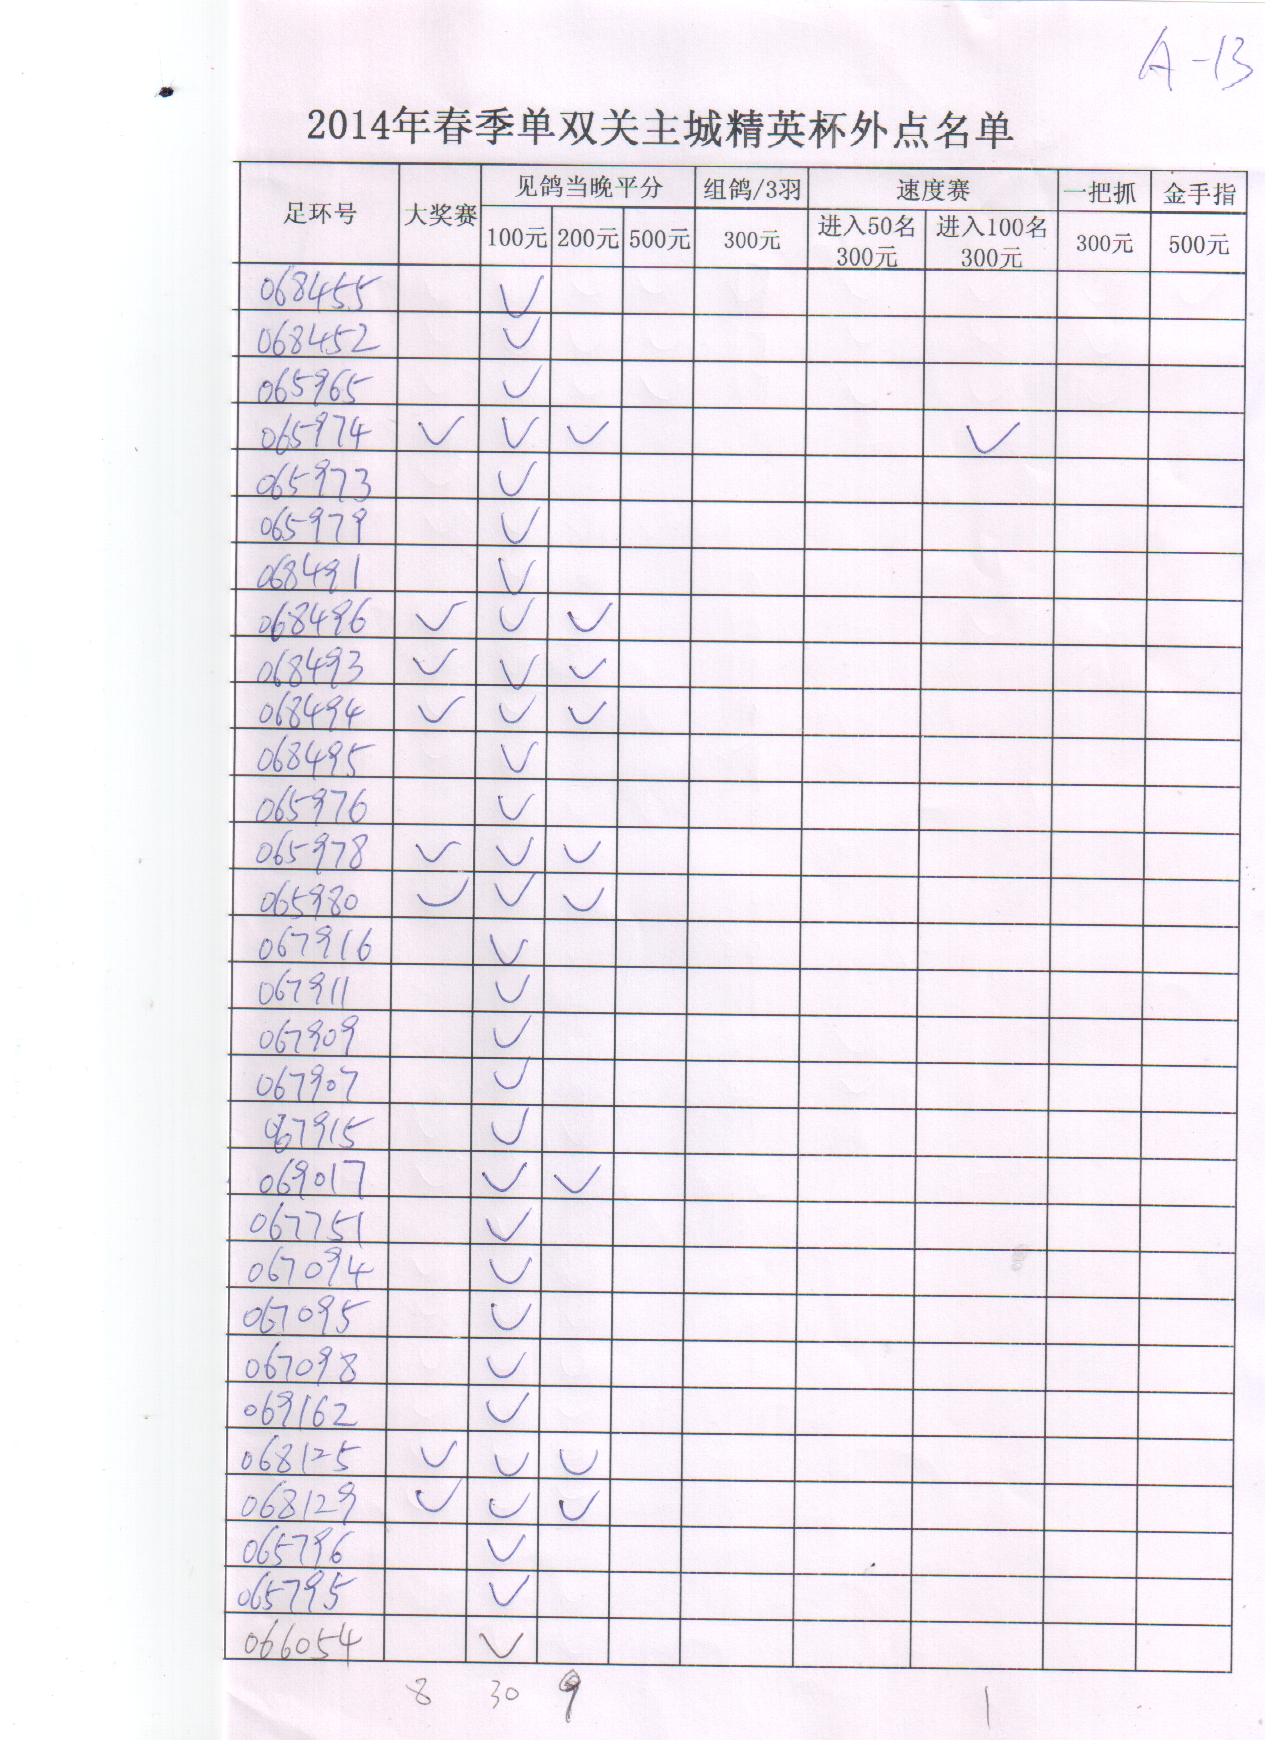 A-13
2014年春季单双关主城精英杯外点名单
足环号 大奖赛 见鸽当晚平分 组鸽/3羽 速度赛 一把抓 金手指
100元 200元 500元 300元 进入50名 300元 进入100名 300元 300元 500元
068455 ✓
068452 ✓
065965 ✓
065974 ✓ ✓ ✓ ✓
065973 ✓
065979 ✓
068491 ✓
068496 ✓ ✓ ✓
068493 ✓ ✓ ✓
068494 ✓ ✓ ✓
068495 ✓
065976 ✓
065978 ✓ ✓ ✓
065980 ✓ ✓ ✓
067916 ✓
067911 ✓
067909 ✓
067907 ✓
067915 ✓
069017 ✓ ✓
067751 ✓
067094 ✓
067095 ✓
067098 ✓
069162 ✓
068125 ✓ ✓ ✓
068129 ✓ ✓ ✓
065796 ✓
065795 ✓
066054 ✓
8 30 9 1